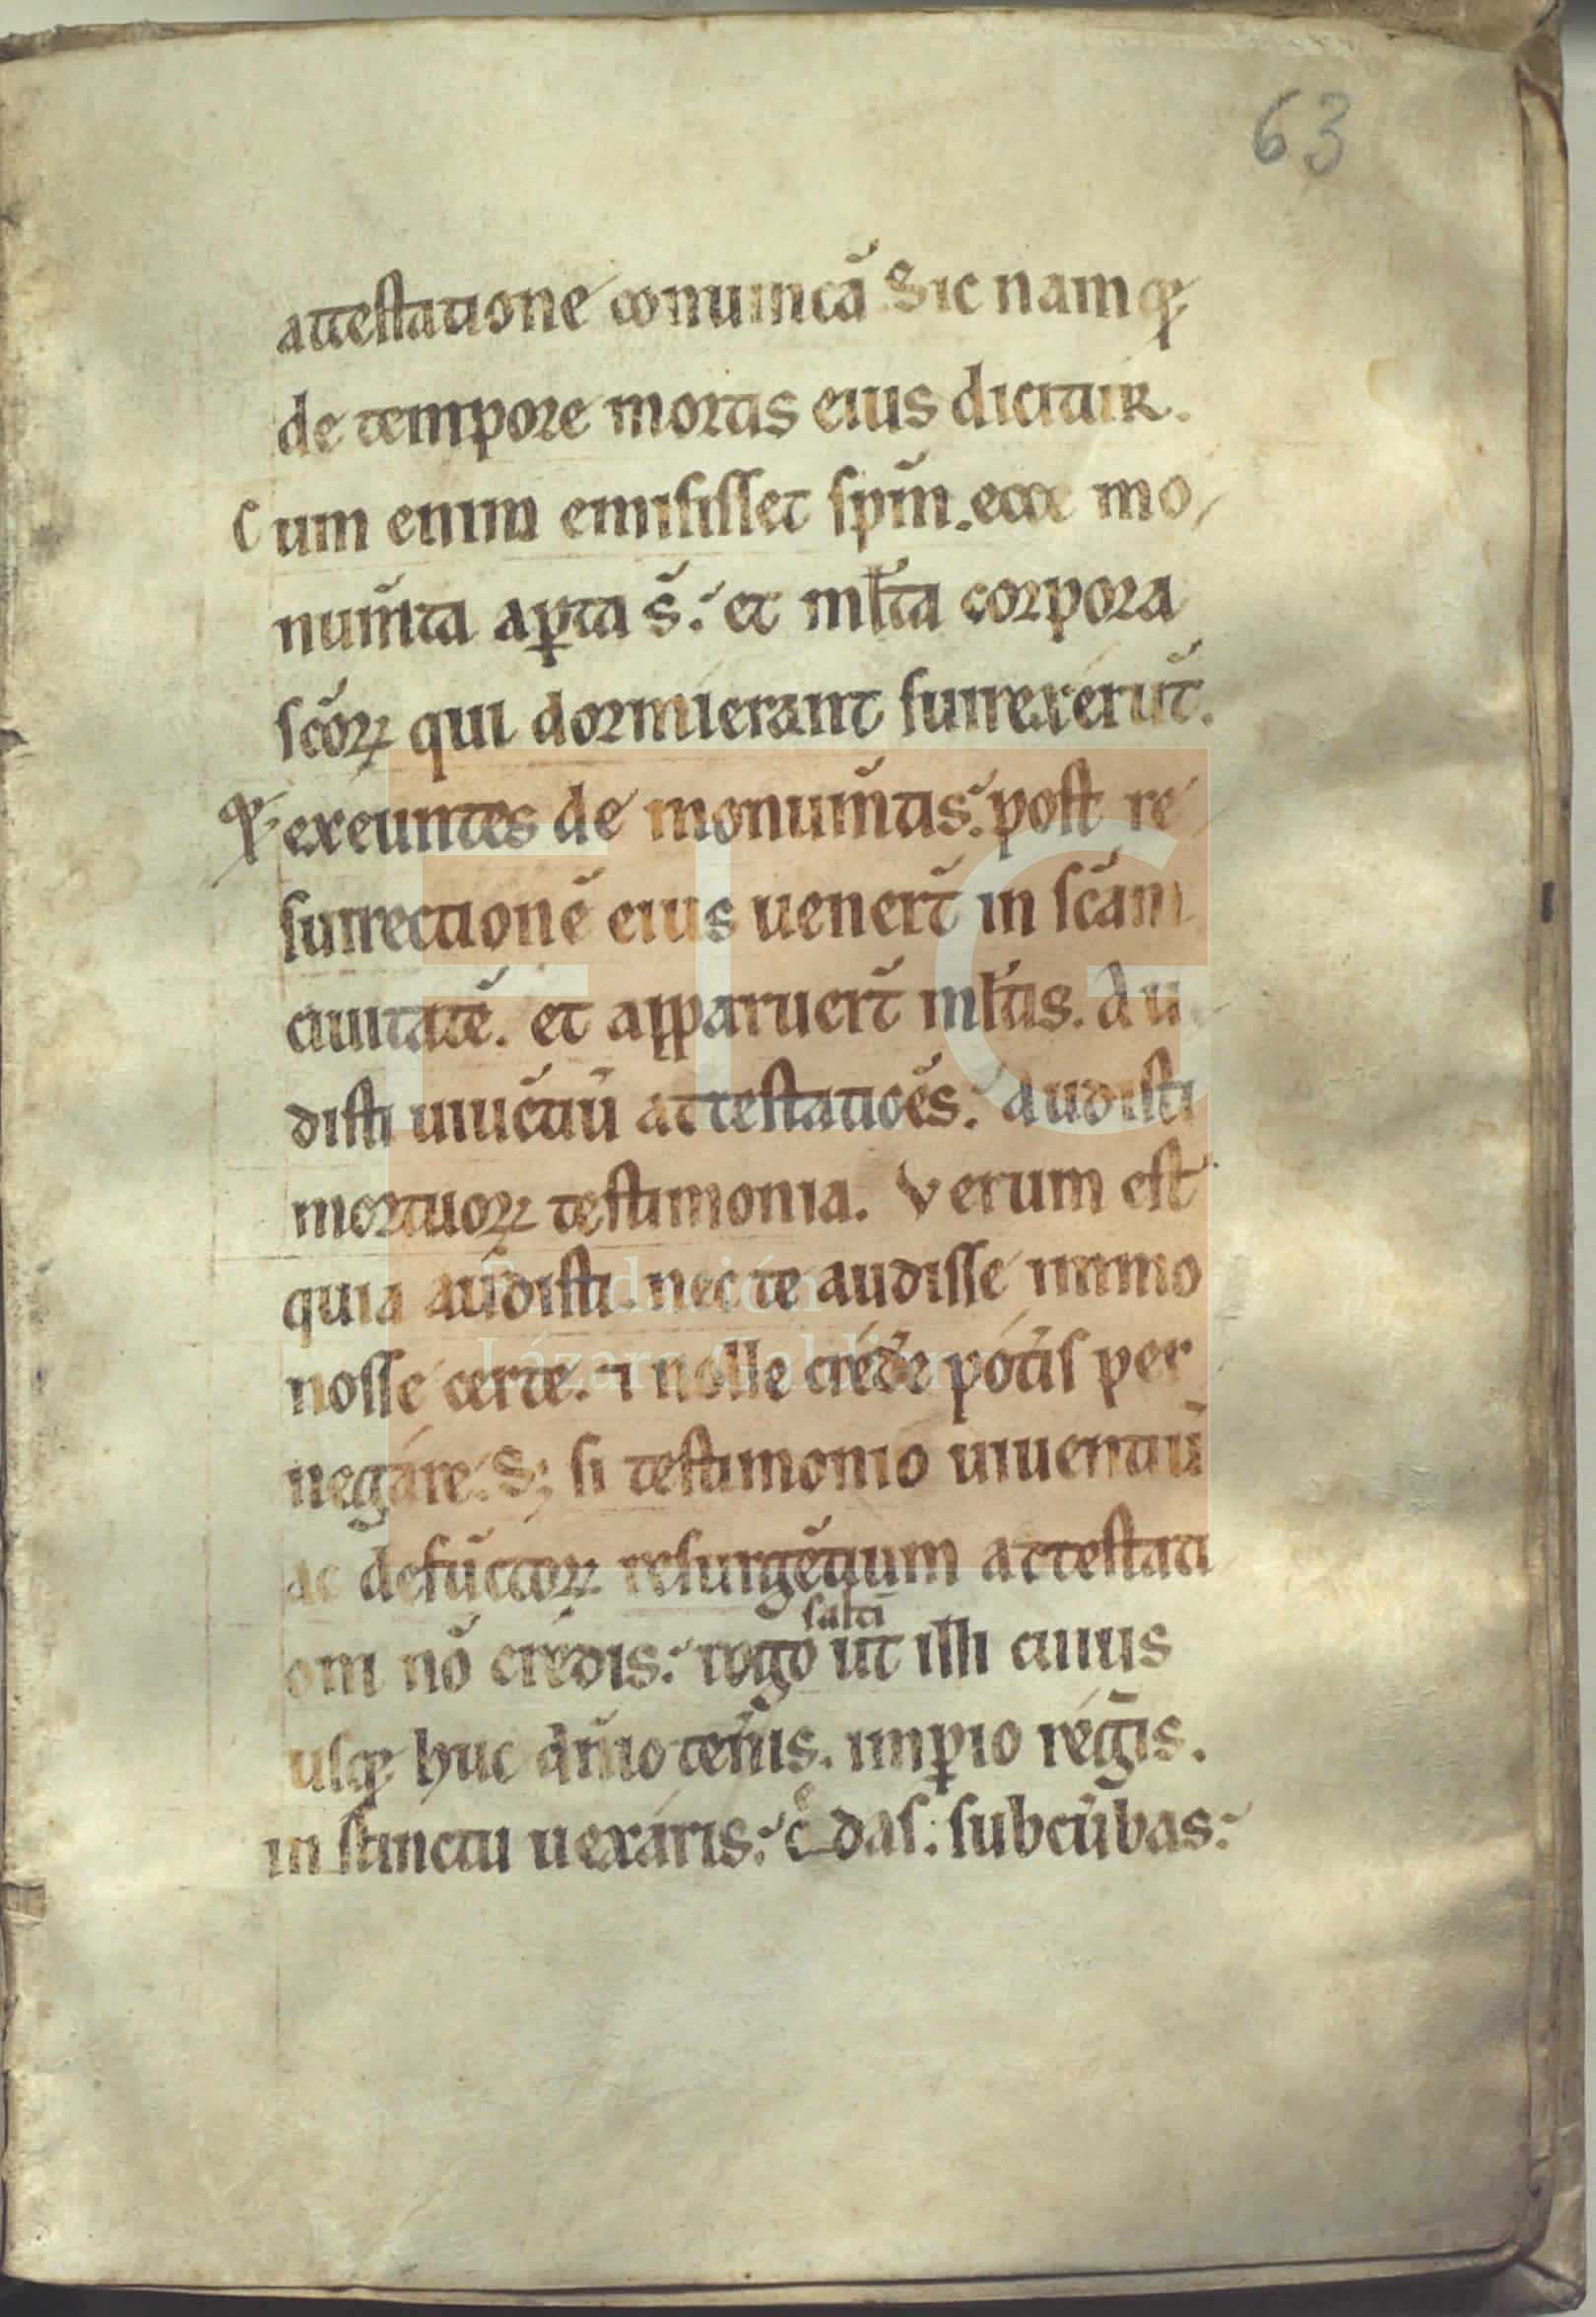 63
attestatione conuincā Sic namqꝫ
de tempore mortis eius dicitur.
Cum enim emisisset sp̄m. ecce mo
num̄ta aꝑta s̄. et ml̄ta corpora
sc̄oꝝ qui dormierant surrexerūt.
qꝫ exeuntes de monum̄tis. post re
surrectionē eius uenerт̄ in sc̄am
ciuitatē. et apparuerт̄ ml̄tis. Au
disti uiuētiū attestatioēs. Audisti
mortuoꝝ testimonia. Verum est
quia audisti. nec te audisse immo
nosse certe. ⁊ nolle créde pot̄is per
negáre. Sꝫ si testimonio uiuentiū
ac defūctoꝝ resurgētium attestati
oni nō crédis. rogo salti ut illi cuius
usqꝫ huc dn̄io ten̄is. imꝑio réḡis.
instinctu uexáris. c̄das. subcūbas.
Fundación
Lázaro Galdiano